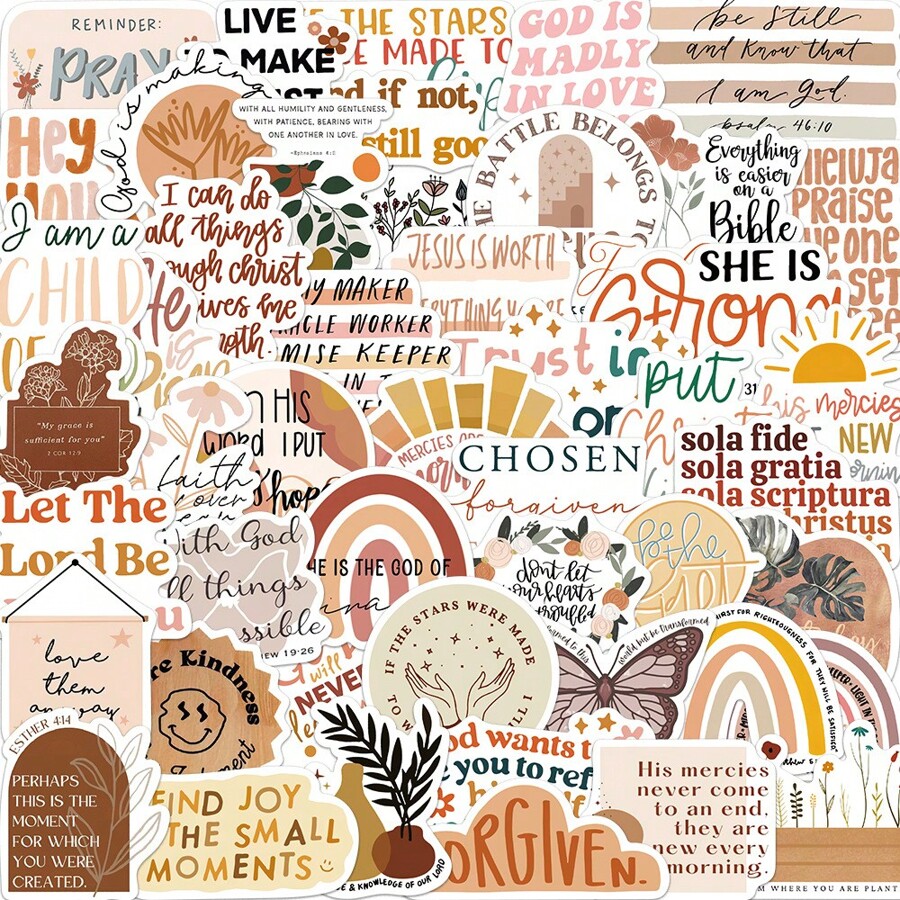 REMINDER:
PRAY
LIVE
TO MAKE
THE STARS
MADE TO
GOD IS
MADLY
IN LOVE
be still
and know that
I am God.
psalm 46:10
HEY
YOU
God is making
WITH ALL HUMILITY AND GENTLENESS,
WITH PATIENCE, BEARING WITH
ONE ANOTHER IN LOVE.
-Ephesians 4:2
nd if not,
still good
BATTLE BELONGS
Everything
is easier
on a
Bible
PRAISE
I am a
CHILD
OF
I can do
all things
ough christ
ives me
JESUS IS WORTH
SHE IS
Strong
Y MAKER
ACLE WORKER
MISE KEEPER
IN T
Trust in
put
31
his mercies
NEW
"My grace is
sufficient for you"
2 COR 12:9
N HIS
WORD I PUT
hope
faith
over
MERCIES ARE
or
CHOSEN
forgiven
sola fide
sola gratia
sola scriptura
hristus
Let The
Lord Be
With God
ll things
ssible
EW 19:26
HE IS THE GOD OF
don't let
our hearts
be the
light
IF THE STARS WERE MADE
would but be transformed
IRST FOR RIGHTEOUSNESS FOR THEY WILL BE SATISFIED
love
them
anyway
re Kindness
will
NEVER
ESTHER 4:14
PERHAPS
THIS IS THE
MOMENT
FOR WHICH
YOU WERE
CREATED.
FIND JOY
THE SMALL
MOMENTS
E & KNOWLEDGE OF OUR LORD
od wants t
you to ref
ORGIVEN.
His mercies
never come
to an end,
they are
new every
morning.
M WHERE YOU ARE PLANT